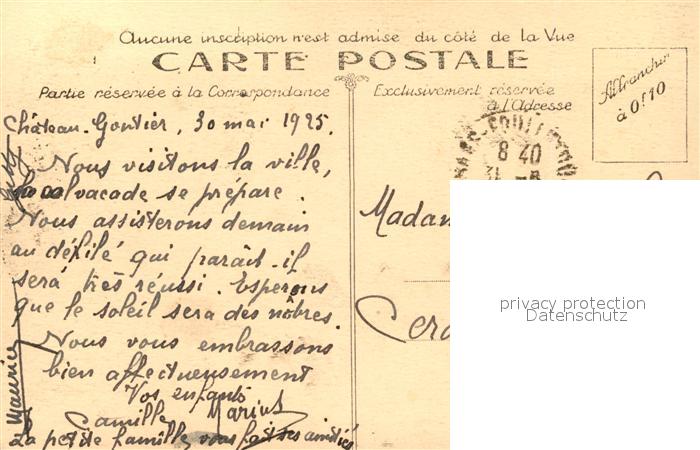 Aucune inscription n'est admise du côté de la Vue
CARTE POSTALE
Partie réservée à la Correspondance
Exclusivement réservée
à l'Adresse
Affranchir
à 0f10
8 40
31
Château-Gontier, 30 mai 1925.
Nous visitons la ville,
la cavalcade se prépare.
Nous assisterons demain
au défilé qui paraît-il
sera très réussi. Espérons
que le soleil sera des nôtres.
Nous vous embrassons
bien affectueusement
Vos enfants
Camille Marius
La petite famille vous fait ses amitiés
Maurice
Madam
privacy protection
Datenschutz